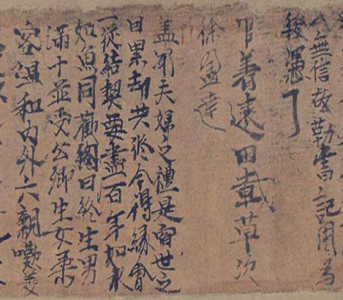 無信故勒書記用為
後憑了
善遠田
盖聞夫婦之禮是宿世之
因累劫共修今得緣會
一從結契要盡百年如水
如魚同歡終日生男
滿十並受公卿生女柔
容溫和內外六親歡美